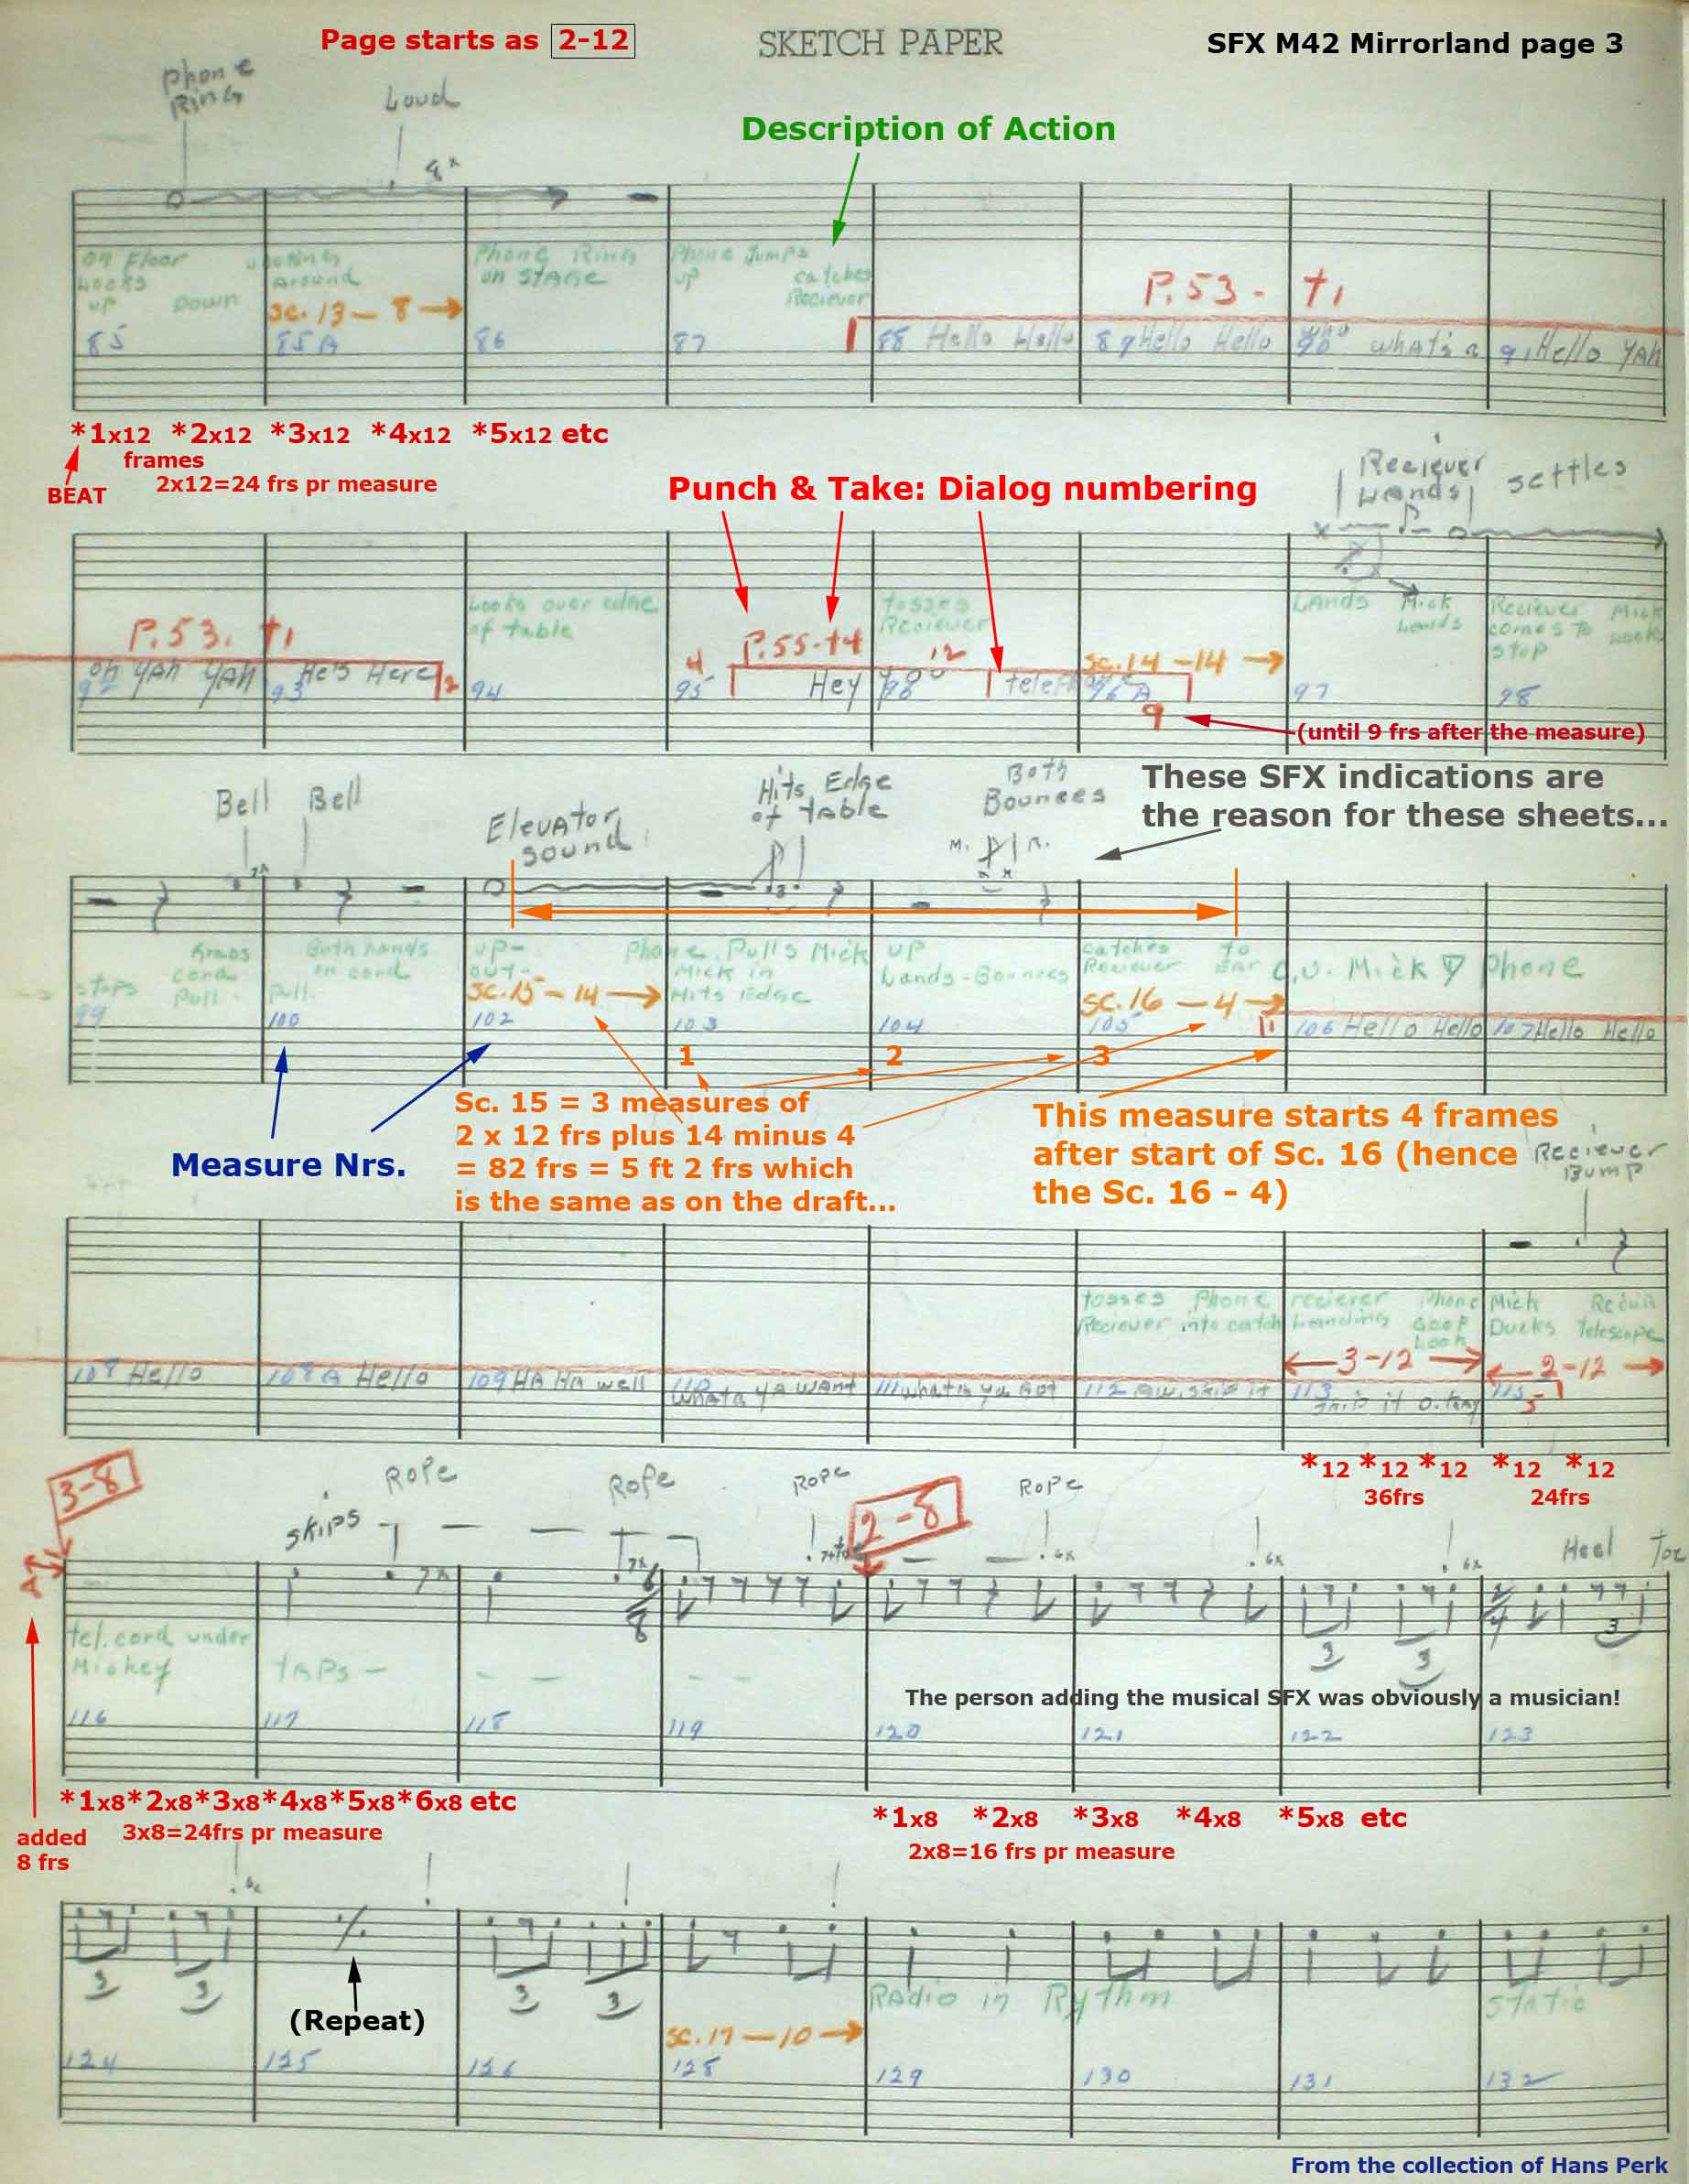 Page starts as 2-12
SKETCH PAPER
SFX M42 Mirrorland page 3
phone
Ring
Loud
Description of Action
on Floor
Looks
up Down
Looking
Around
Sc. 13 - 8 →
Phone Ring
on STAGE
Phone Jumps
up catches
Reciever
P.53 - t1
85 85A 86 87
88 Hello Hello
89 Hello Hello
90 what's a
91 Hello YAH
*1x12 *2x12 *3x12 *4x12 *5x12 etc
frames
BEAT
2x12=24 frs pr measure
Punch & Take: Dialog numbering
Reciever
Lands
settles
P.53. t1
Looks over edge
of table
4
P.55-t4
tosses
Reciever
12
Sc.14 - 14 →
LANDS
Mick
Lands
Reciever
comes to
stop
Mick
Looks
oh YAh YAh
93 He's Here 2
94
95 Hey
96 A
9
97
98
(until 9 frs after the measure)
Bell Bell
Elevator
sound
Hits Edge
of table
Both
Bounces
M. R.
These SFX indications are
the reason for these sheets...
stops
Grabs
cord
Pull
Both hands
on cord
Pull
up-
out-
Sc.15 - 14 →
Phone Pulls Mick
Mick in
Hits Edge
up
Lands - Bounces
catches
Reciever
to
Ear
Sc.16 - 4 →
C.U. Mick & phone
99 100 102 103 104 105 11
106 Hello Hello
107 Hello Hello
1 2 3
Measure Nrs.
Sc. 15 = 3 measures of
2 x 12 frs plus 14 minus 4
= 82 frs = 5 ft 2 frs which
is the same as on the draft...
This measure starts 4 frames
after start of Sc. 16 (hence
the Sc. 16 - 4)
Reciever
Bump
tosses Phone
Reciever into catch
reciever
Landing
Phone
Goof
Look
Mick
Ducks
Telescope
←3-12→
←2-12→
108 Hello
108A Hello
109 HA HA well
110
whata YA WAnt
111 whata ya Got
112 Aw, skip it
113
skip it
115
5
*12 *12 *12 *12 *12
36frs 24frs
3-8
Rope
Rope
Rope
2-8
Rope
skips
Heel Toe
tel. cord under
Mickey
TAPS -
The person adding the musical SFX was obviously a musician!
116 117 118 119 120 121 122 123
*1x8*2x8*3x8*4x8*5x8*6x8 etc
3x8=24frs pr measure
added
8 frs
*1x8 *2x8 *3x8 *4x8 *5x8 etc
2x8=16 frs pr measure
3 3 3 3
(Repeat)
RAdio in Rythm
Static
Sc.17 - 10 →
124 125 126 128 129 130 131 132
From the collection of Hans Perk